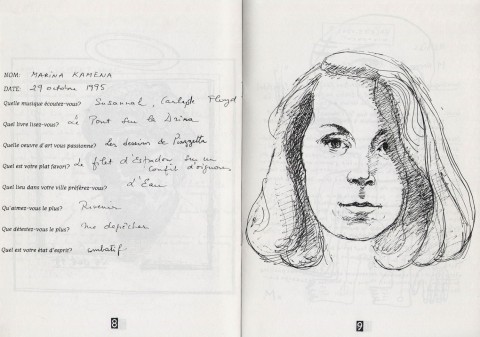 NOM: MARINA KAMENA
DATE: 29 octobre 1995
Quelle musique écoutez-vous? Susannah, Carlisle Floyd
Quel livre lisez-vous? Le Pont sur la Drina
Quelle oeuvre d'art vous passionne? Les dessins de Piazzetta
Quel est votre plat favori? Le filet d'Estradon sur un
confit d'oignons
Quel lieu dans votre ville préférez-vous? d'Eau
Qu'aimez-vous le plus? River
Que détestez-vous le plus? me dépêcher
Quel est votre état d'esprit? combatif
8
9